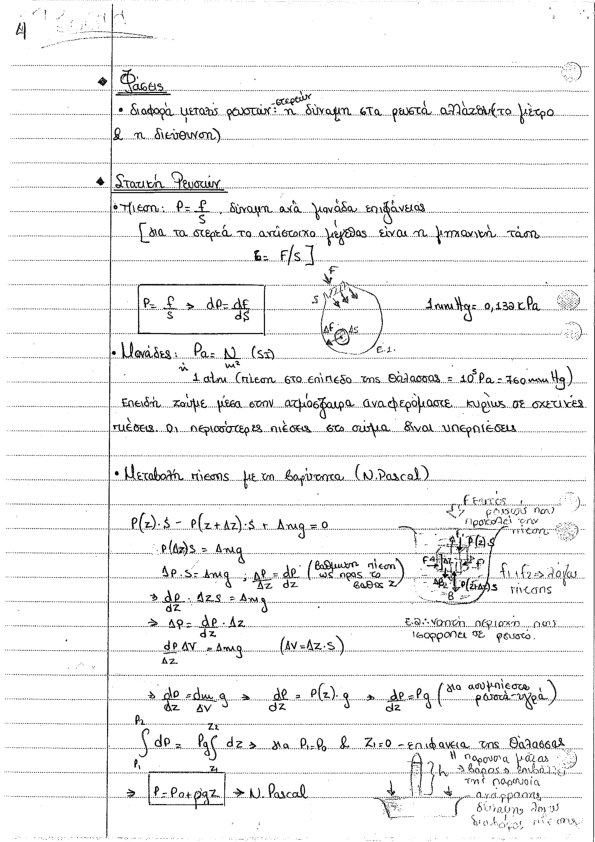 Φάσεις
• διαφορά μεταξύ ρευστών-στερεών: η δύναμη στα ρευστά αλλάζει (το μέτρο
& η διεύθυνση)
Στατική Ρευστών
• Πίεση: P = f/S, δύναμη ανά μονάδα επιφάνειας
[για τα στερεά το αντίστοιχο μέγεθος είναι η μηχανική τάση
σ = F/S]
P = f/S → dP = dF/dS
F
S
ΔF ΔS
E.1.
1 mmHg = 0,132 kPa
• Μονάδες: Pa = N/m² (SI)
1 atm (πίεση στο επίπεδο της θάλασσας = 10⁵ Pa = 760 mm Hg)
Επειδή ζούμε μέσα στην ατμόσφαιρα αναφερόμαστε κυρίως σε σχετικές
πιέσεις. Οι περισσότερες πιέσεις στο σώμα είναι υπερπιέσεις
• Μεταβολή πίεσης με τη βαρύτητα (Ν. Pascal)
P(z)·S - P(z+Δz)·S + Δmg = 0
P(Δz)S = Δmg
ΔP·S = Δmg ; ΔP/Δz = dP/dz (βάθμωση πίεση ως προς το βάθος z)
⇒ dP/dz · ΔzS = Δmg
⇒ ΔP = dP/dz · Δz
dP/Δz ΔV = Δmg (ΔV = Δz·S)
f εκτός
ρευστού που
προκαλεί την
πίεση
P(z)·S
P(z+Δz)S
B
f1, f2 → λόγω
πίεσης
E.2.: νοητή περιοχή που
ισορροπεί σε ρευστό.
⇒ dP/Δz = dm/ΔV g ⇒ dP/dz = P(z)·g ⇒ dP/dz = ρg (για ασυμπίεστα ρευστά-υγρά)
∫P1P2 dP = ρg ∫z1z2 dz ⇒ για P1=P0 & z1=0 - επιφάνεια της θάλασσας
⇒ P = P0 + ρgz → Ν. Pascal
h
Η παρουσία μάζας
→ βάρος → επιβάλλει
την παρουσία
δύναμης λόγω
διαφοράς πίεσης